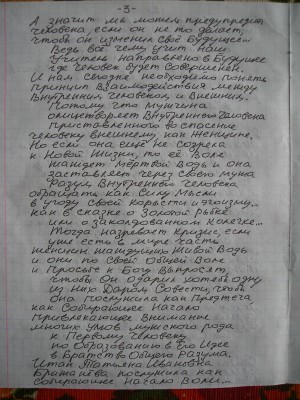 -3-
А значит мы можем предупредить
человека, если он не то делает,
чтобы он изменил своё будущее...
Ведь всё чему учит наш
Учитель направлено в Будущее
где Человек будет Совершенен.
И нам сегодня необходимо понять
Принцип Взаимодействия между
Внутренним человеком, и Внешним.
Потому что мужчина
олицетворяет Внутреннего Человека
Приставленного во спасение
человеку внешнему как Женщине,
Но если она ещё не созрела
к Новой Жизни, то её Воле
нальёт Мёртвой Воды и она
заставляет через своего мужа
Разум Внутреннего человека
обращать как Силу Мысли
в угоду своей Корысти и эгоизму...
как в сказке о Золотой Рыбке
или о заколдованном Колечке...
Тогда назревает кризис, если
уже есть в мире части
женщин жаждущих Живой Воды
и они по Своей Общей Воле
и Просьбе к Богу Выпросят,
чтобы Он одарил хотя бы одну
из них Даром Совести, чтобы
она послужила как Предтеча
как Собирающее Начало
Привлекающее Внимание
многих умов мужского рода
к Первому Человеку
по Образованию в Его Идее
в Братство Общего Разума.
Итак Татьяна Ивановна
послужила как
Собирающее Начало Воли...